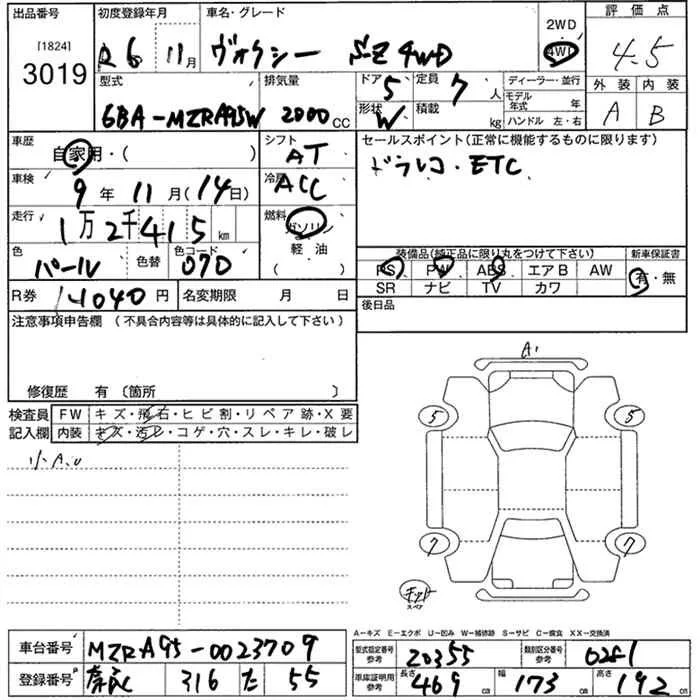 出品番号 初度登録年月 車名・グレード 評価点
[1824]
3019
R6 11月 ヴォクシー S-Z 4WD 2WD 4WD 4.5
型式 排気量 ドア 5 定員 7人 ディーラー・並行 外装 内装
6BA-MZRA95W 2000cc 形状 W 積載 kg モデル年式 年 A B
ハンドル 左・右
車歴 自家用・( ) シフト AT セールスポイント(正常に機能するものに限ります)
車検 9年11月(14日) 冷房 ACC ドラレコ・ETC
走行 1万2千415km 燃料 ガソリン 軽油 ( )
色 パール 色替 色コード 070 装備品(純正品に限り丸をつけて下さい) 新車保証書
PS PW ABS エアB AW 有・無
R券 14040円 名変期限 月 日 SR ナビ TV カワ
注意事項申告欄 (不具合内容等は具体的に記入して下さい) 後日品
修復歴 有 〔箇所 〕
検査員 FW キズ・飛石・ヒビ割・リペア跡・X要
記入欄 内装 キズ・汚レ・コゲ・穴・スレ・キレ・破レ
小A.U
A1
5 5
7 7
キット
スペア
A=キズ E=エクボ U=凹み W=補修跡 S=サビ C=腐食 XX=交換済
車台番号 MZRA95-0023709 型式指定番号 参考 20355 類別区分番号 参考 0281
登録番号 奈良 316 た 55 車庫証明用 参考 長さ 469cm 幅 173cm 高さ 192cm